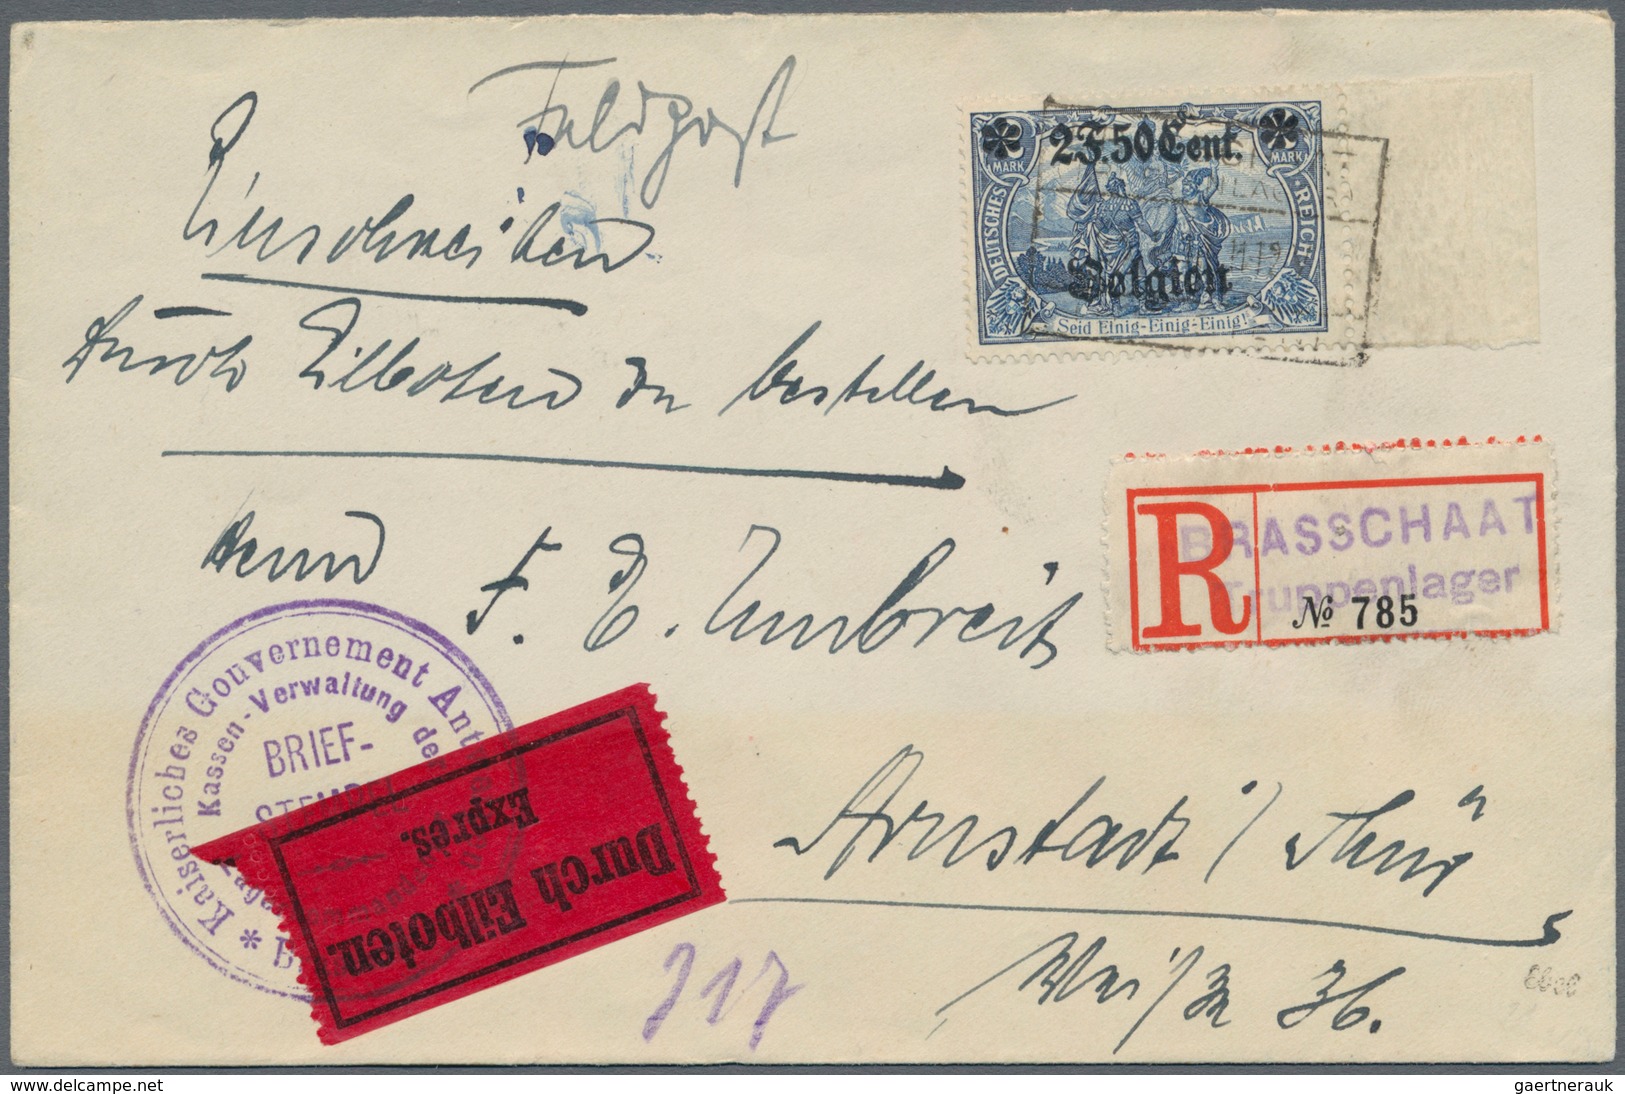 Feldpost
Einschreiben
durch Eilboten zu bestellen
Herrn
F. E. Umbreit
Arnstadt / Thür
Weiße 36.
2 MARK 2 F. 50 Cent. 2 MARK
DEUTSCHES REICH
Belgien
Seid Einig-Einig-Einig!
R
BRASSCHAAT
Truppenlager
№ 785
* Kaiserliches Gouvernement Ant
Kassen-Verwaltung de
BRIEF-
STEMPEL
Durch Eilboten.
Expres.
317
delcampe.net
gaertnerauk